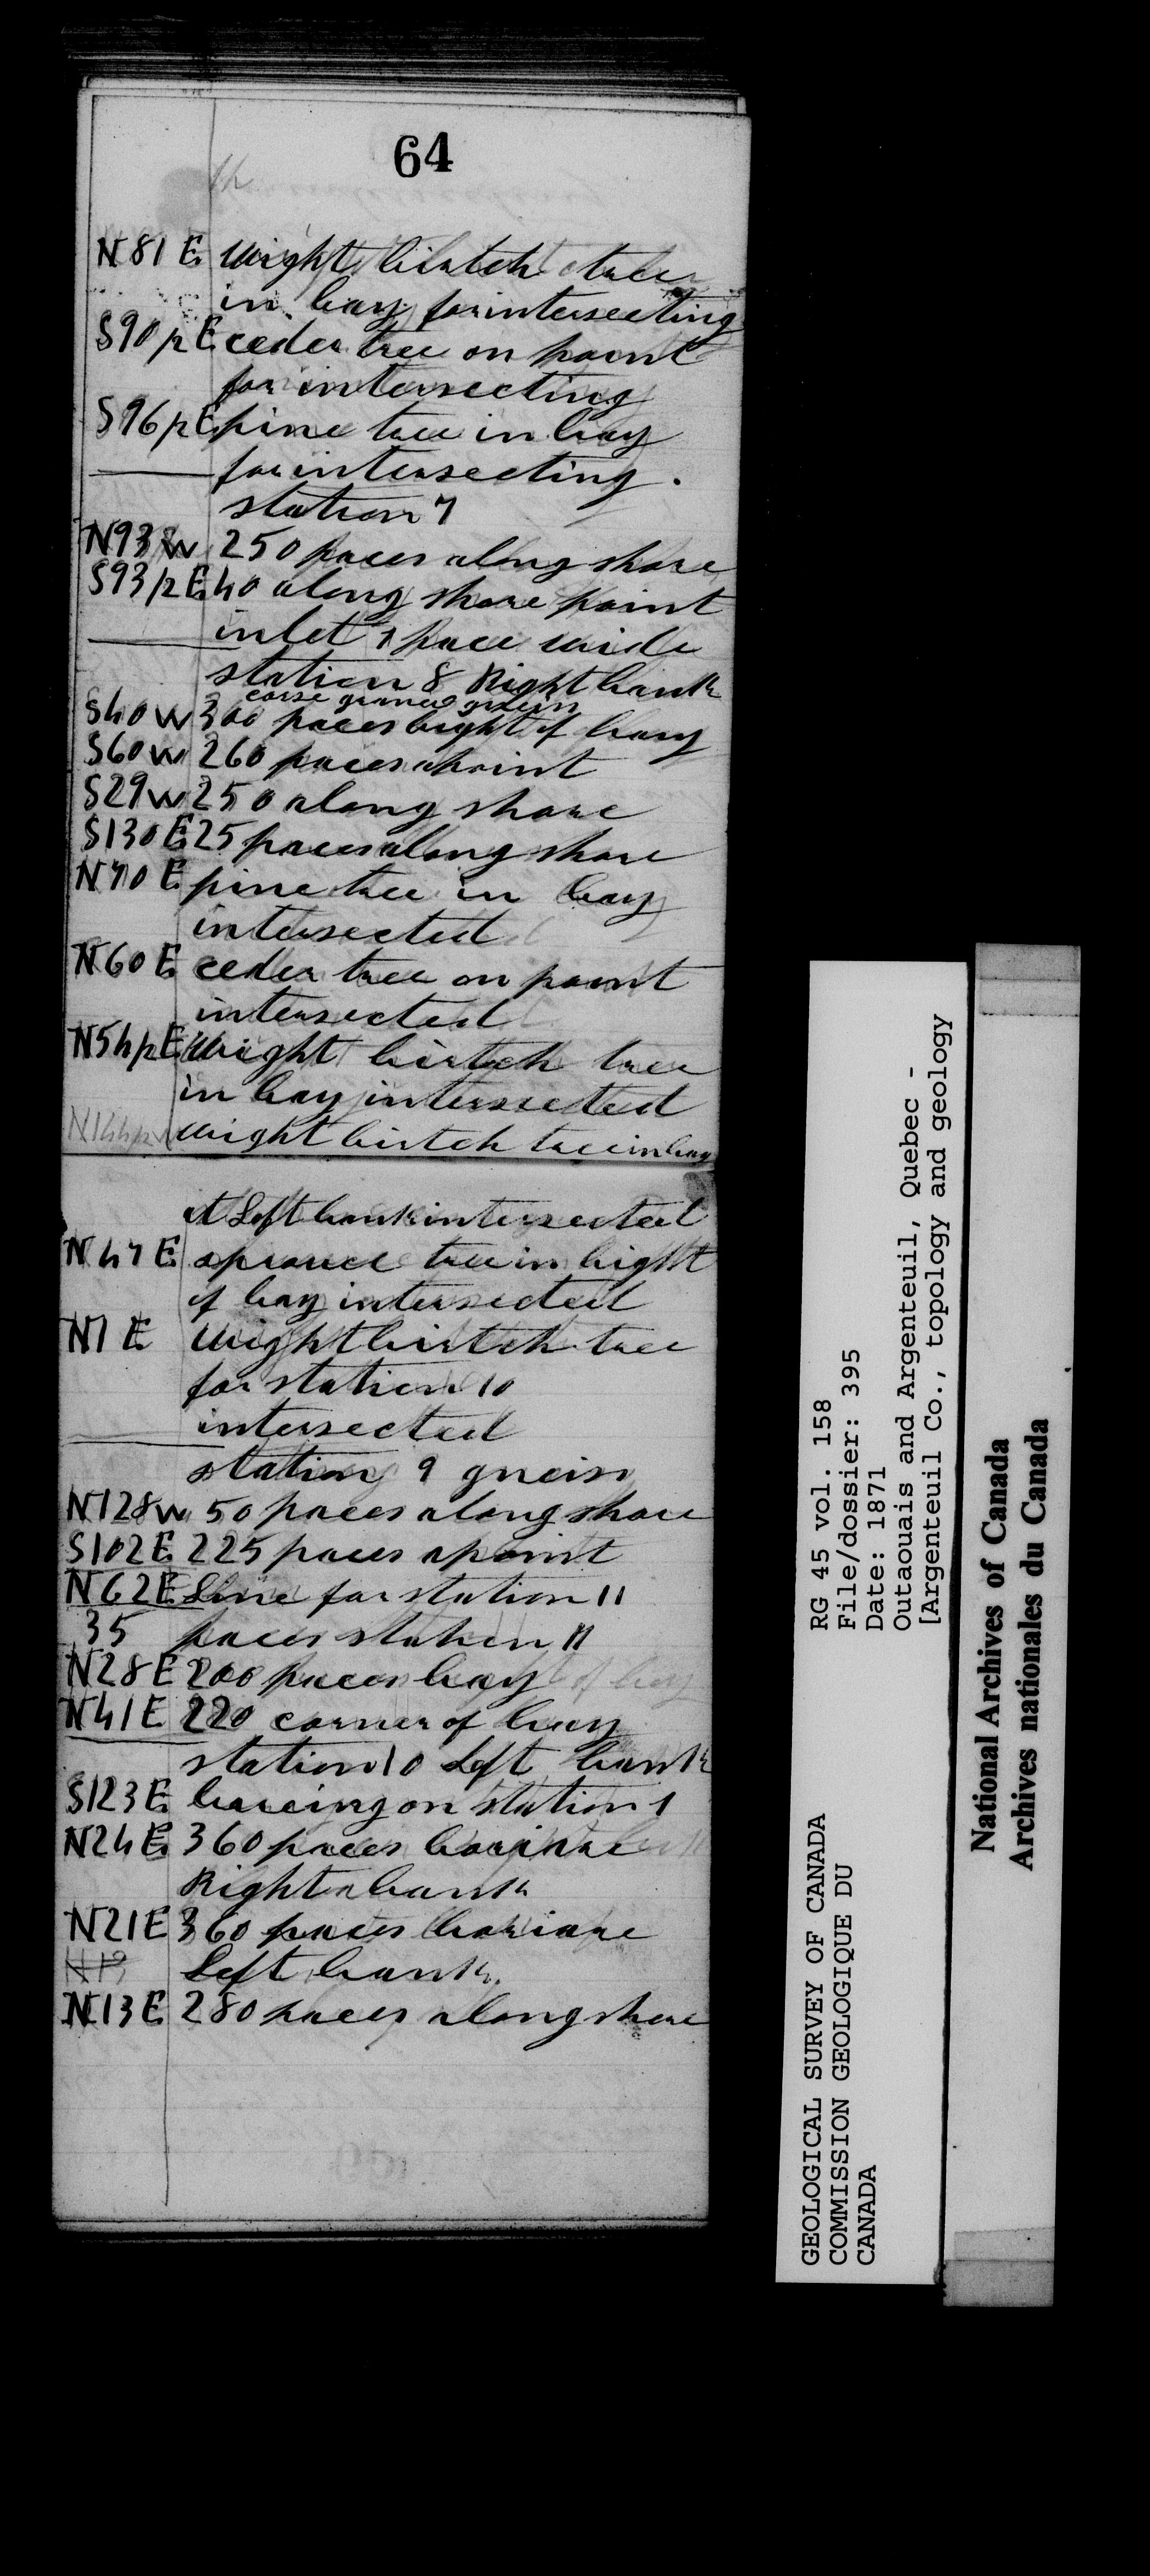 64
N 81 E wight birtch tree
in bay for intersecting
S 90 1/2 E ceder tree on point
for intersecting
S 96 1/2 E pine tree in bay
for intersecting.
station 7
N 93 W 250 paces along shore
S 93 1/2 E 40 along shore point
inlet 1 pace wide
station 8 Right bank
corse graned gneiss
S 40 W 300 paces bight of bay
S 60 W 260 paces a point
S 29 W 250 along shore
S 130 E 25 paces along shore
N 70 E pine tree in bay
intersected
N 60 E ceder tree on point
intersected
N 54 1/2 E wight birtch tree
in bay intersected
N 144 1/2 wight birtch tree in bay
at Left bank intersected
N 47 E spruce tree in bight
of bay intersected
N 1 E wight birtch tree
for station 10
intersected
station 9 gneiss
N 128 W 50 paces along shore
S 102 E 225 paces a point
N 62 E Line for station 11
35 paces station 11
N 28 E 200 paces bay
N 41 E 220 corner of bay
station 10 Left bank
S 123 E bareing on station 1
N 24 E 360 paces
Right bank
N 21 E 360 paces
N 19 Left bank.
N 13 E 280 paces along shore
RG 45 vol. 158
File/dossier: 395
Date: 1871
Outaouais and Argenteuil, Quebec -
[Argenteuil Co., topology and geology
GEOLOGICAL SURVEY OF CANADA
COMMISSION GEOLOGIQUE DU
CANADA
National Archives of Canada
Archives nationales du Canada